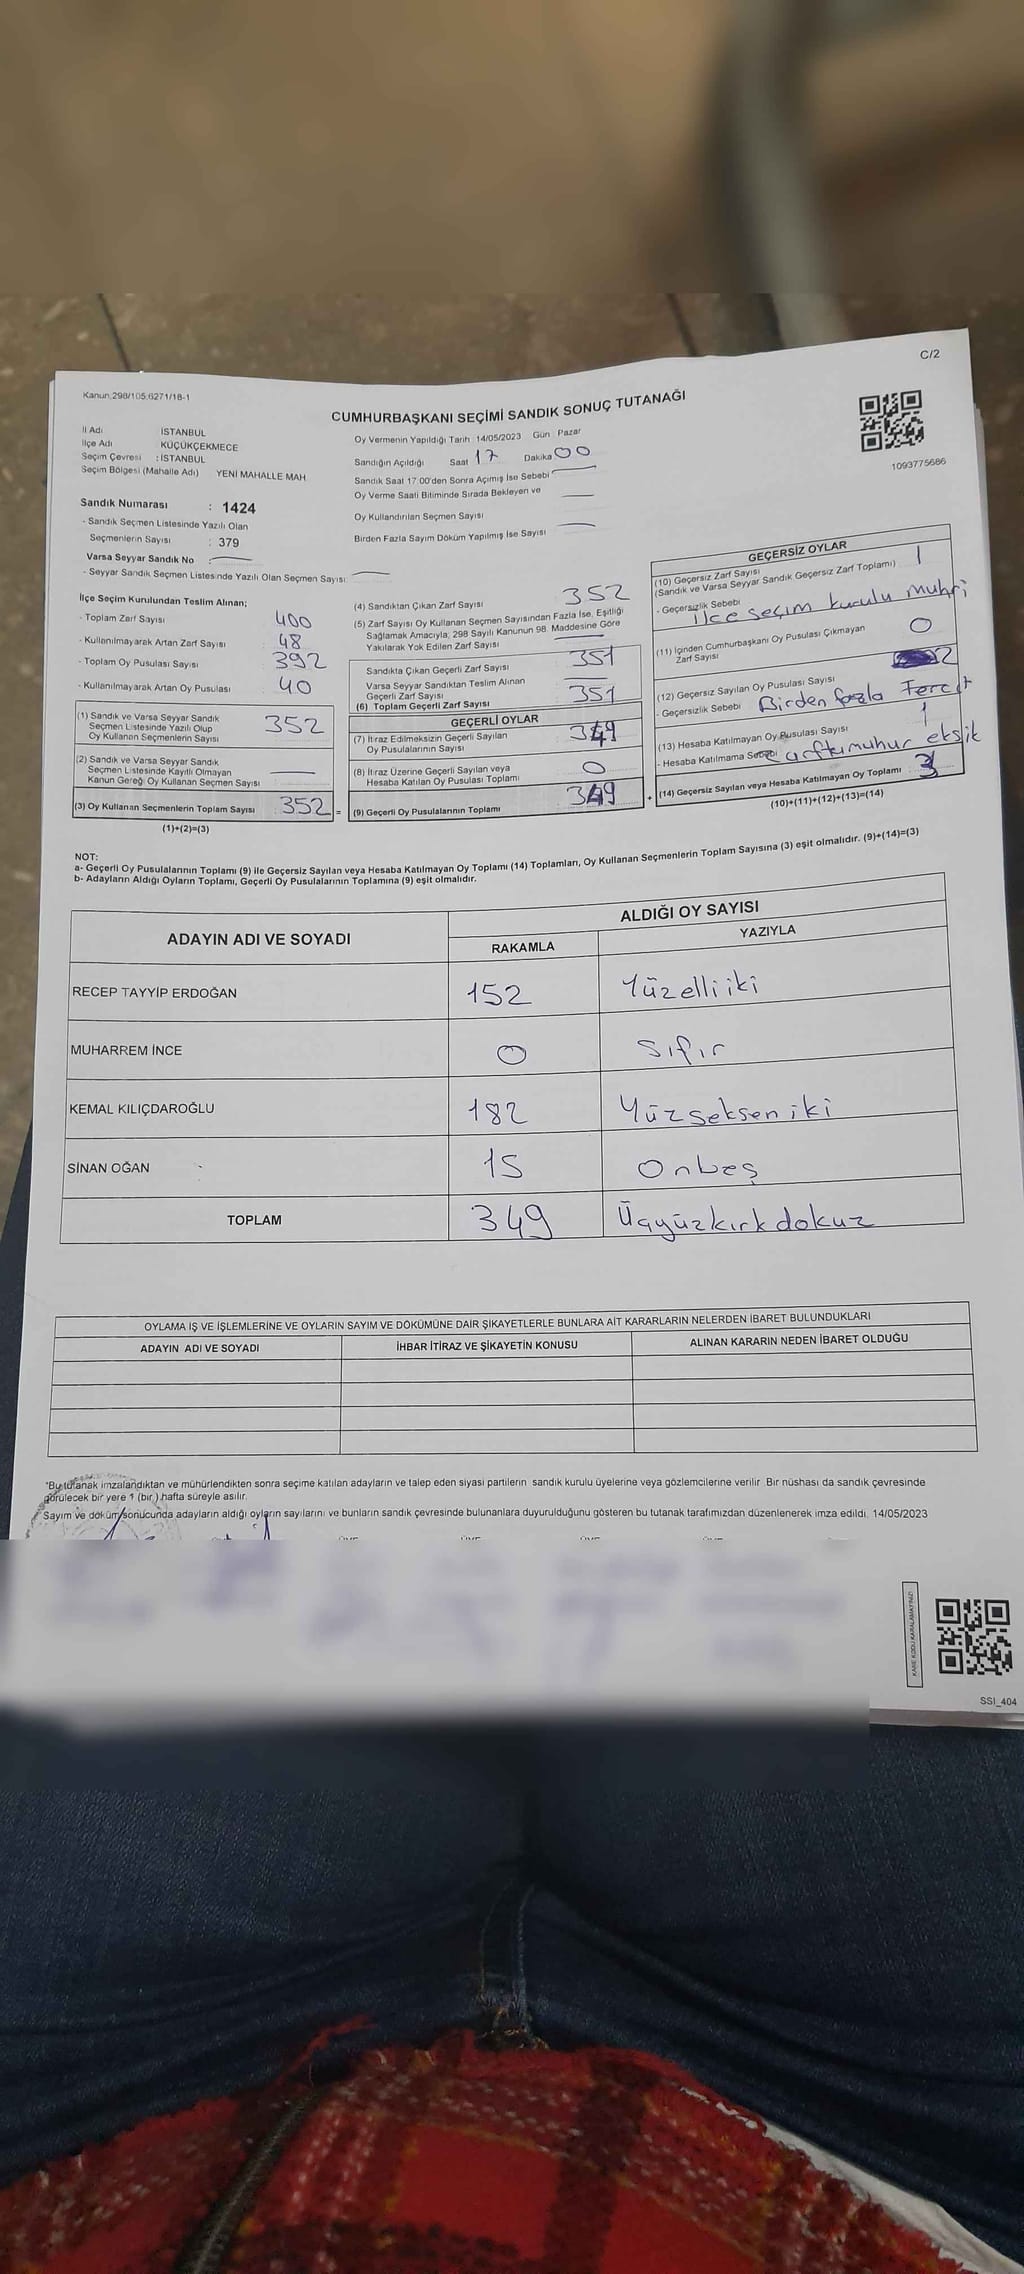 C/2
Kanun.298/105.6271/18-1
CUMHURBAŞKANI SEÇİMİ SANDIK SONUÇ TUTANAĞI
İl Adı İSTANBUL
İlçe Adı KÜÇÜKÇEKMECE
Seçim Çevresi : İSTANBUL
Seçim Bölgesi (Mahalle Adı) YENİ MAHALLE MAH
Oy Vermenin Yapıldığı Tarih 14/05/2023 Gün Pazar
Sandığın Açıldığı Saat 17 Dakika 00
Sandık Saat 17.00'den Sonra Açılmış İse Sebebi
Oy Verme Saati Bitiminde Sırada Bekleyen ve
Oy Kullandırılan Seçmen Sayısı
Birden Fazla Sayım Döküm Yapılmış İse Sayısı
1093775686
Sandık Numarası : 1424
- Sandık Seçmen Listesinde Yazılı Olan
Seçmenlerin Sayısı : 379
Varsa Seyyar Sandık No :
- Seyyar Sandık Seçmen Listesinde Yazılı Olan Seçmen Sayısı:
İlçe Seçim Kurulundan Teslim Alınan;
- Toplam Zarf Sayısı 400
- Kullanılmayarak Artan Zarf Sayısı 48
- Toplam Oy Pusulası Sayısı 392
- Kullanılmayarak Artan Oy Pusulası 40
(1) Sandık ve Varsa Seyyar Sandık
Seçmen Listesinde Yazılı Olup
Oy Kullanan Seçmenlerin Sayısı 352
(2) Sandık ve Varsa Seyyar Sandık
Seçmen Listesinde Kayıtlı Olmayan
Kanun Gereği Oy Kullanan Seçmen Sayısı
(3) Oy Kullanan Seçmenlerin Toplam Sayısı 352 =
(1)+(2)=(3)
(4) Sandıktan Çıkan Zarf Sayısı 352
(5) Zarf Sayısı Oy Kullanan Seçmen Sayısından Fazla İse, Eşitliği
Sağlamak Amacıyla, 298 Sayılı Kanunun 98. Maddesine Göre
Yakılarak Yok Edilen Zarf Sayısı
Sandıkta Çıkan Geçerli Zarf Sayısı 351
Varsa Seyyar Sandıktan Teslim Alınan
Geçerli Zarf Sayısı
(6) Toplam Geçerli Zarf Sayısı 351
GEÇERLİ OYLAR
(7) İtiraz Edilmeksizin Geçerli Sayılan
Oy Pusulalarının Sayısı 349
(8) İtiraz Üzerine Geçerli Sayılan veya
Hesaba Katılan Oy Pusulası Toplamı 0
(9) Geçerli Oy Pusulalarının Toplamı 349 +
GEÇERSİZ OYLAR
(10) Geçersiz Zarf Sayısı
(Sandık ve Varsa Seyyar Sandık Geçersiz Zarf Toplamı) 1
- Geçersizlik Sebebi ilçe seçim kurulu muhri
(11) İçinden Cumhurbaşkanı Oy Pusulası Çıkmayan
Zarf Sayısı 0
(12) Geçersiz Sayılan Oy Pusulası Sayısı 2
- Geçersizlik Sebebi Birden fazla Tercit
(13) Hesaba Katılmayan Oy Pusulası Sayısı 1
- Hesaba Katılmama muhur eksik
(14) Geçersiz Sayılan veya Hesaba Katılmayan Oy Toplamı 3
(10)+(11)+(12)+(13)=(14)
NOT:
a- Geçerli Oy Pusulalarının Toplamı (9) ile Geçersiz Sayılan veya Hesaba Katılmayan Oy Toplamı (14) Toplamları, Oy Kullanan Seçmenlerin Toplam Sayısına (3) eşit olmalıdır. (9)+(14)=(3)
b- Adayların Aldığı Oyların Toplamı, Geçerli Oy Pusulalarının Toplamına (9) eşit olmalıdır.
ADAYIN ADI VE SOYADI
ALDIĞI OY SAYISI
RAKAMLA YAZIYLA
RECEP TAYYİP ERDOĞAN 152 Yüzelliiki
MUHARREM İNCE 0 Sıfır
KEMAL KILIÇDAROĞLU 182 Yüzsekseniki
SİNAN OĞAN 15 Onbeş
TOPLAM 349 Üçyüzkırkdokuz
OYLAMA İŞ VE İŞLEMLERİNE VE OYLARIN SAYIM VE DÖKÜMÜNE DAİR ŞİKAYETLERLE BUNLARA AİT KARARLARIN NELERDEN İBARET BULUNDUKLARI
ADAYIN ADI VE SOYADI İHBAR İTİRAZ VE ŞİKAYETİN KONUSU ALINAN KARARIN NEDEN İBARET OLDUĞU
*Bu tutanak imzalandıktan ve mühürlendikten sonra seçime katılan adayların ve talep eden siyasi partilerin sandık kurulu üyelerine veya gözlemcilerine verilir. Bir nüshası da sandık çevresinde
görülecek bir yere 1 (bir ) hafta süreyle asılır.
Sayım ve döküm sonucunda adayların aldığı oyların sayılarını ve bunların sandık çevresinde bulunanlara duyurulduğunu gösteren bu tutanak tarafımızdan düzenlenerek imza edildi. 14/05/2023
KARE KODU KARALAMAYINIZ!
SSI_404